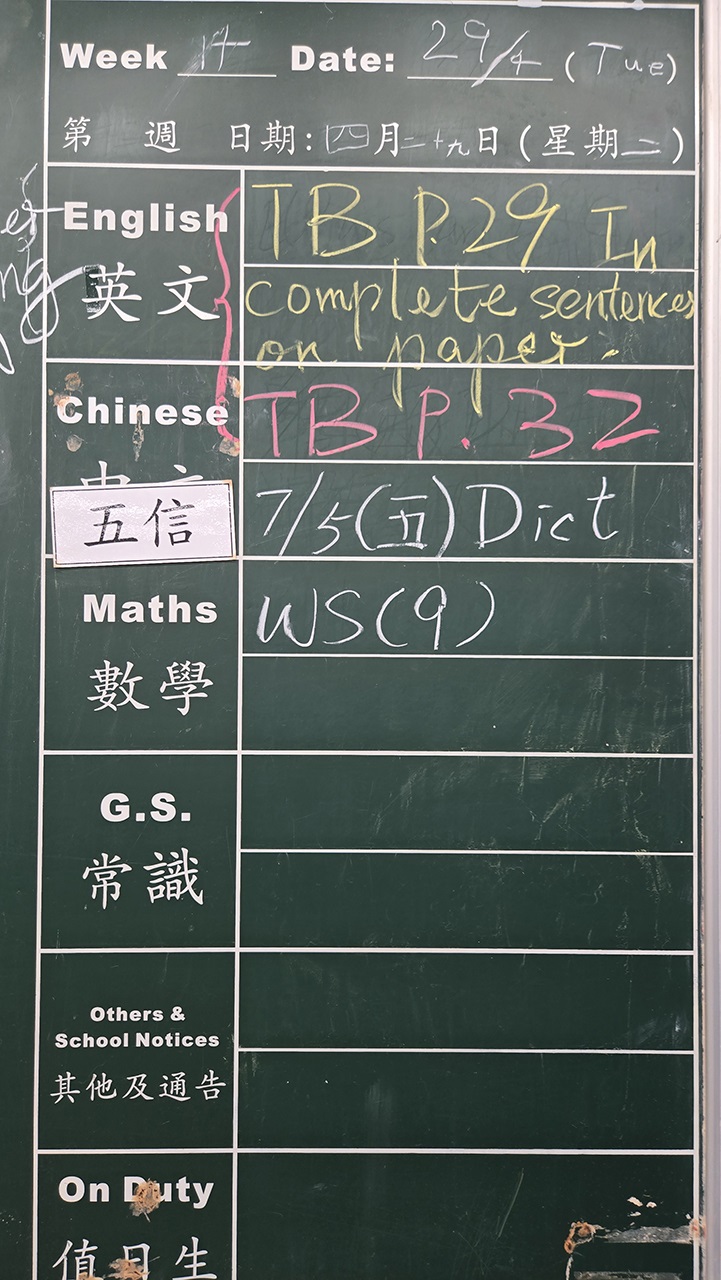 Week 14 Date: 29/4 (Tue)
第 週 日期: 四月二十九日 (星期二)
English TB P.29 In
英文 complete sentences
on paper.
Chinese TB P. 32
五信 7/5(五) Dict
Maths WS(9)
數學
G.S.
常識
Others &
School Notices
其他及通告
On Duty
值日生